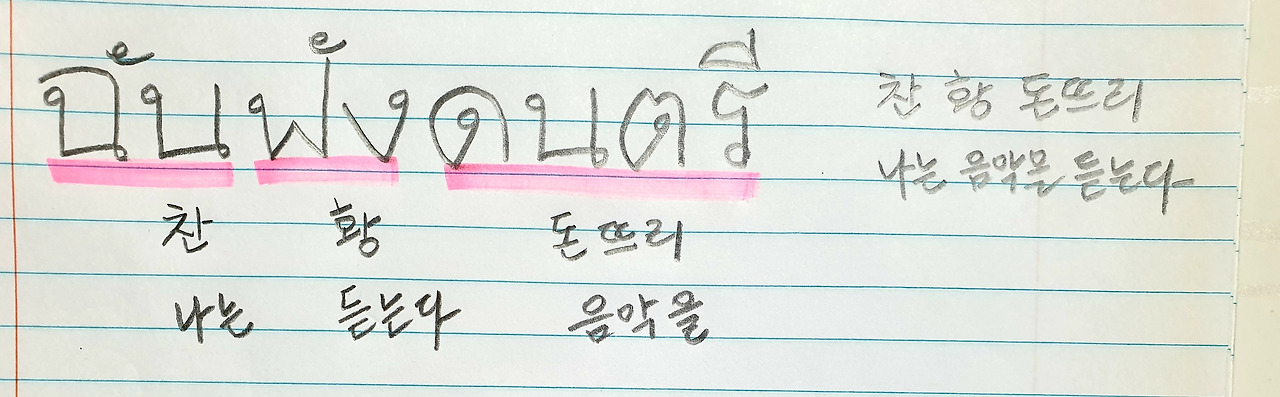 ฉันฟังดนตรี
찬 황 돈뜨리
나는 음악을 듣는다
찬 황 돈뜨리
나는 듣는다 음악을